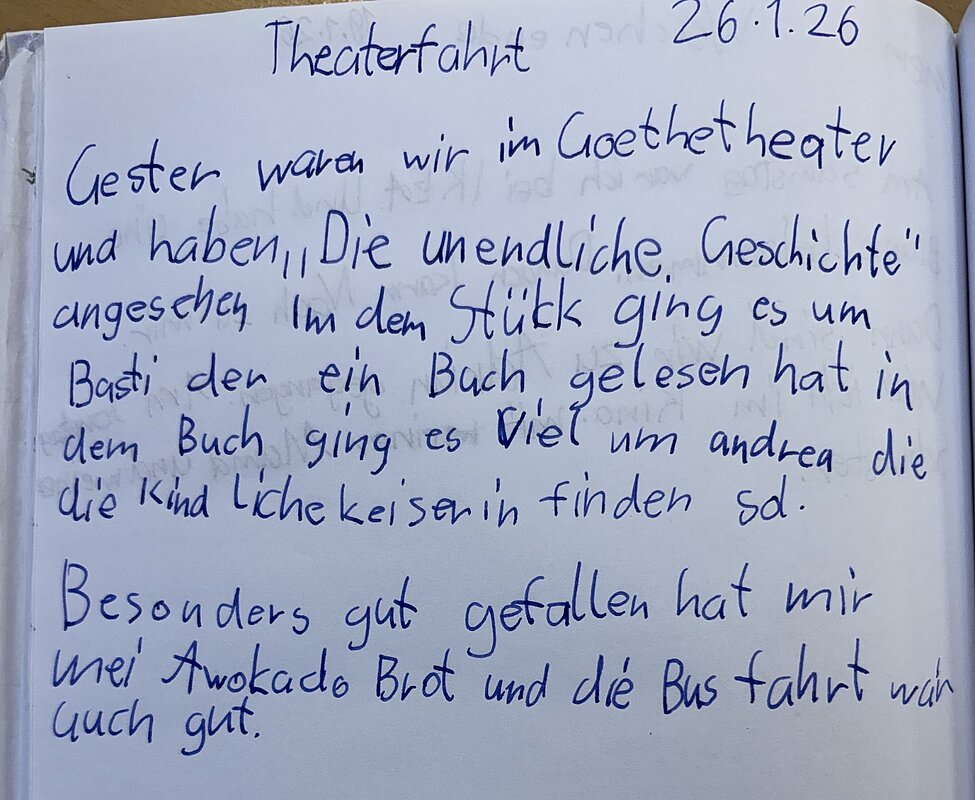 Theaterfahrt 26.1.26
Gester waren wir im Goethetheater
und haben „Die unendliche Geschichte"
angesehen Im dem Stütk ging es um
Basti der ein Buch gelesen hat in
dem Buch ging es Viel um andrea die
die Kind liche keiserin finden sol.
Besonders gut gefallen hat mir
mei Awokado Brot und die Bus fahrt war
auch gut.